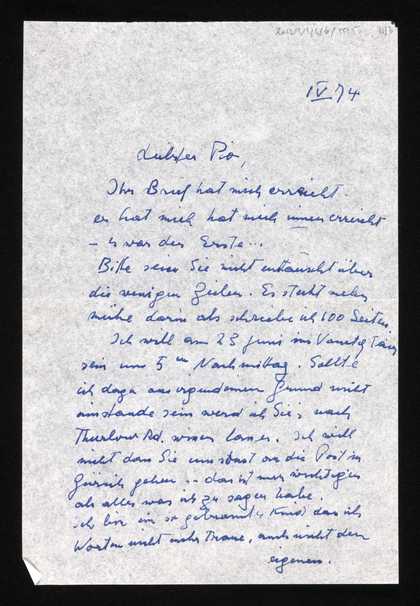 IV 74
Liebster Pio,
Ihr Brief hat mich erreicht.
er hat mich hat mich innen erreicht
– Es war der Erste...
Bitte seien Sie nicht enttäuscht über
die wenigen Zeilen. Es steckt mehr
mühe darin als schriebe ich 100 Seiten.
Ich will am 23 Juni im
sein um 5 Uhr Nachmittag. Sollte
ich dazu aus irgendeinem Grund nicht
imstande sein werd ich Sie nach
Thurlow Rd. wissen lassen. Ich will
nicht dass Sie umsonst an die Post in
Zürich gehen .. das ist mir wichtiger
als alles was ich zu sagen habe.
Ich bin ein so gebranntes Kind das ich
Worten nicht mehr Traue, auch nicht den
eigenen.